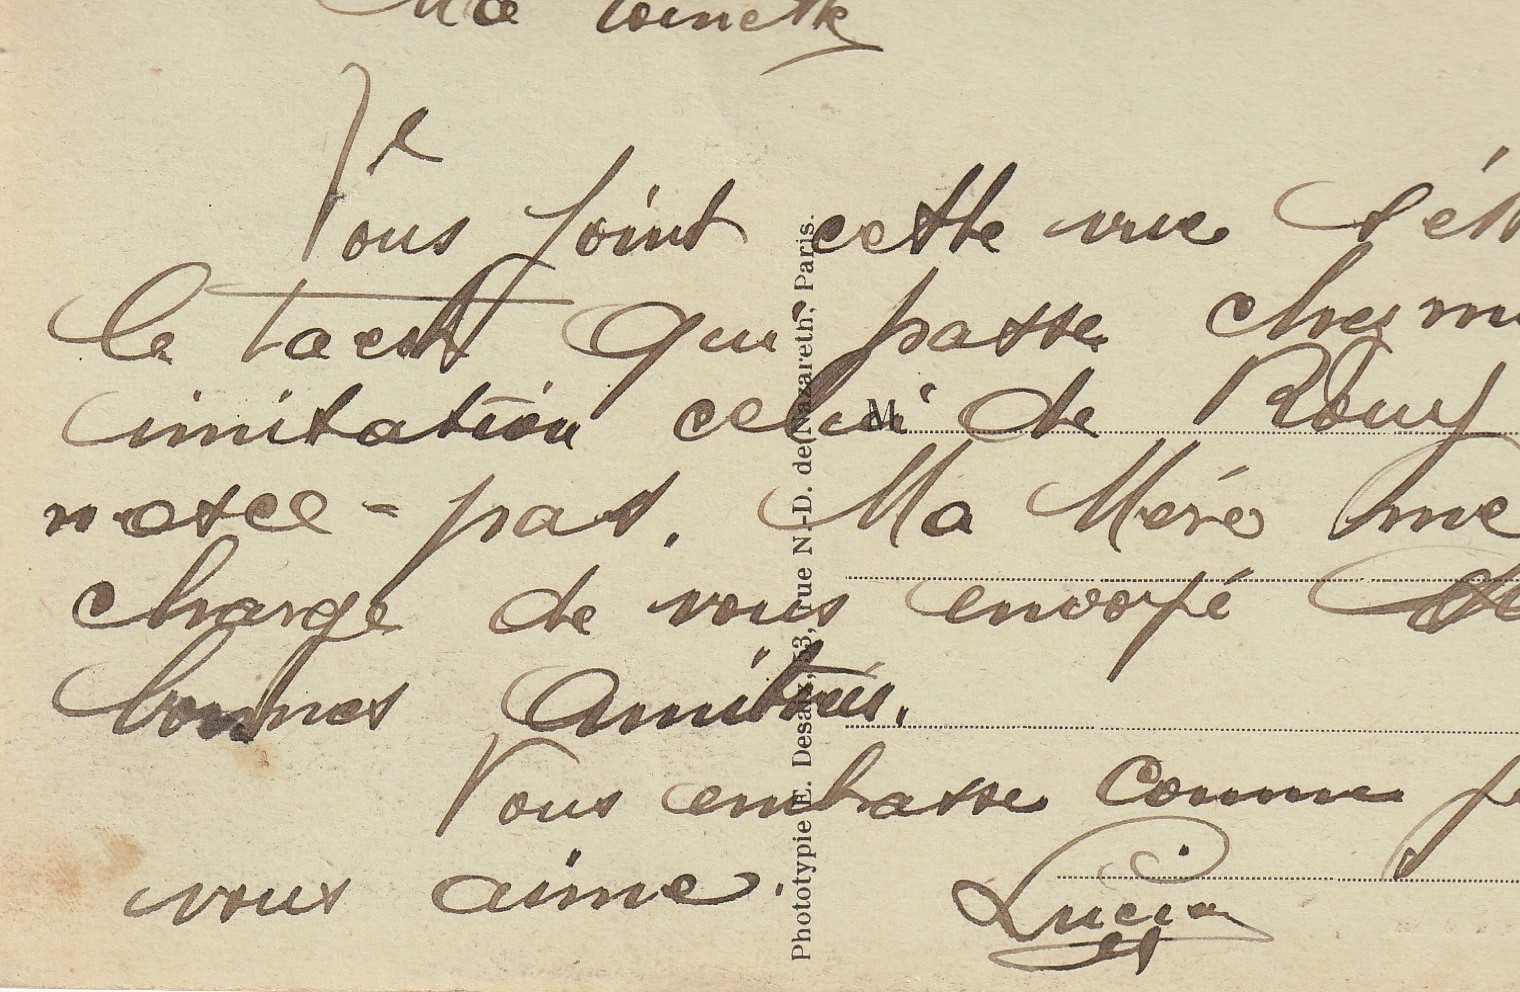 Ma Toinette
Je
Vous joint cette vue c'est
le qui passe chez
imitation celui de
nesce-pas. Ma Mère me
charge de vous envoyé
bonnes amitiés.
Vous embasse comme je
vous aime.
Lucien
M
Phototypie E. Desaix, 53, rue N.-D. de Nazareth, Paris.